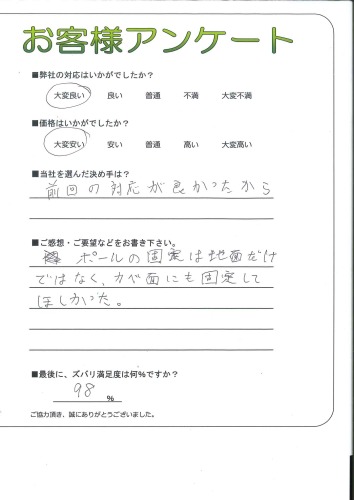 お客様アンケート
■弊社の対応はいかがでしたか？
大変良い 良い 普通 不満 大変不満
■価格はいかがでしたか？
大変安い 安い 普通 高い 大変高い
■当社を選んだ決め手は？
前回の対応が良かったから
■ご感想・ご要望などをお書き下さい。
ポールの固定は地面だけ
ではなく、カベ面にも固定して
ほしかった。
■最後に、ズバリ満足度は何%ですか？
98 %
ご協力頂き、誠にありがとうございました。